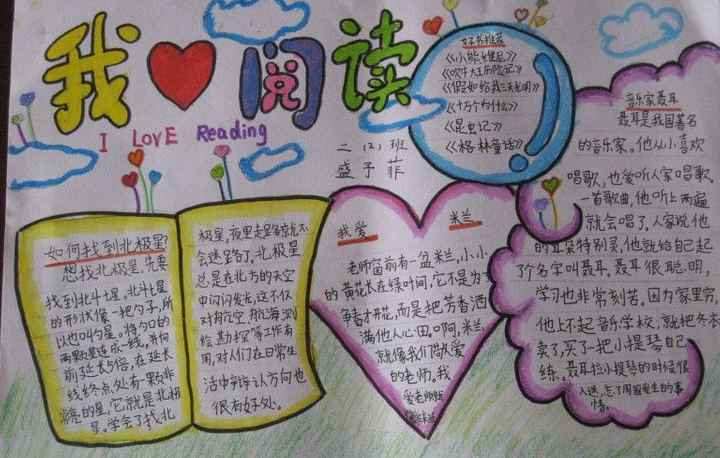 我❤阅读
I LOVE Reading
二(2)班
盛子菲
好书推荐
《小熊维尼》
《吹牛大王历险记》
《假如给我三天光明》
《十万个为什么》
《昆虫记》
《格林童话》
如何找到北极星?
想找北极星,先要
找到北斗七星。北斗七星
的形状像一把勺子,所
以也叫勺星。将勺口的
两颗星连成一线,并向
前延长5倍,在延长
线终点处有一颗非
常亮的星,它就是北极
星。学会了找北
极星,夜里走路就不
会迷路了。北极星
总是在北方的天空
中闪闪发光,这不仅
对航空、航海、测
绘、勘探等工作有
用,对人们在日常生
活中辨认方向也
很有好处。
我爱 米兰
老师窗前有一盆米兰,小小
的黄花长在绿叶间,它不是为了
争着才开花,而是把芳香洒
满他人心田。啊,米兰
就像我们敬爱
的老师。我
爱老师就
像爱米兰
音乐家聂耳
聂耳是我国著名
的音乐家。他从小喜欢
唱歌,也爱听人家唱歌,
一首歌曲,他听上两遍
就会唱了,人家说他
的耳朵特别灵,他就给自己起
了个名字叫聂耳。聂耳很聪明,
学习也非常刻苦。因为家里穷,
他上不起音乐学校,就把冬衣
卖了,买了一把小提琴自己
练。聂耳拉小提琴的时候很
入迷,忘了周围发生的事
情。